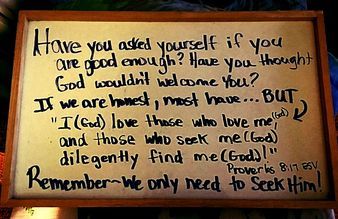 Have you asked yourself if you
are good enough? Have you thought
God wouldn't welcome you?
If we are honest, most have... BUT
"I (God) love those who love me, (God)
and those who seek me (God)
dilegently find me (God)!"
Proverbs 8:17 ESV
Remember~We only need to Seek Him!